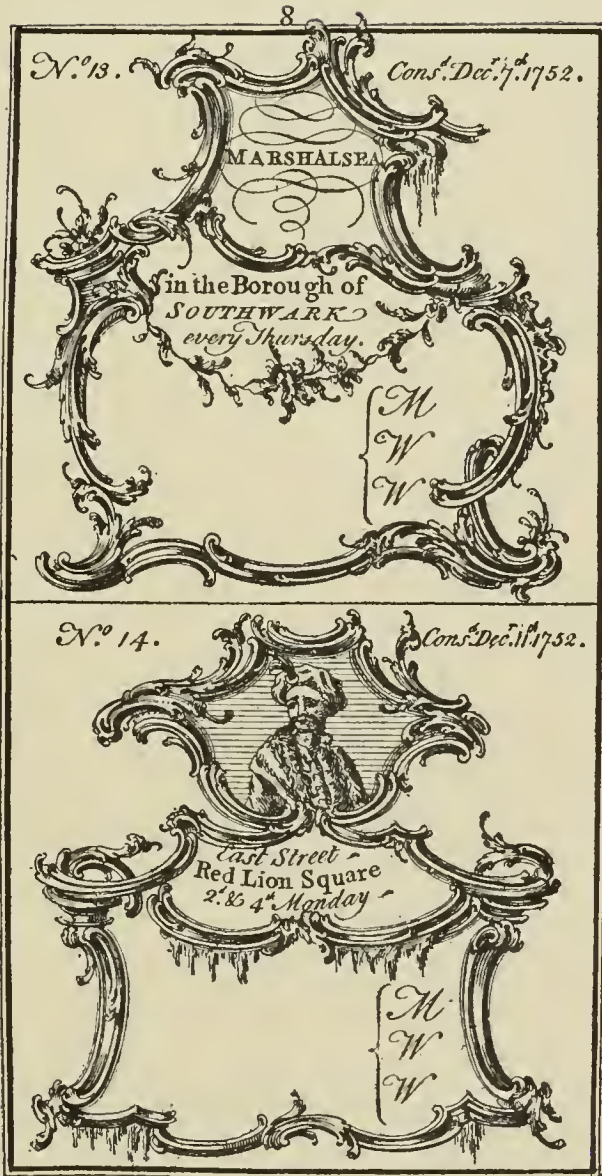 8
N.º 13.
Cons.d Dec.r 7.th 1752.
MARSHALSEA
in the Borough of
SOUTHWARK
every Thursday.
M
W
W
N.º 14.
Cons.d Dec.r 11.th 1752.
East Street
Red Lion Square
2.d & 4.th Monday
M
W
W